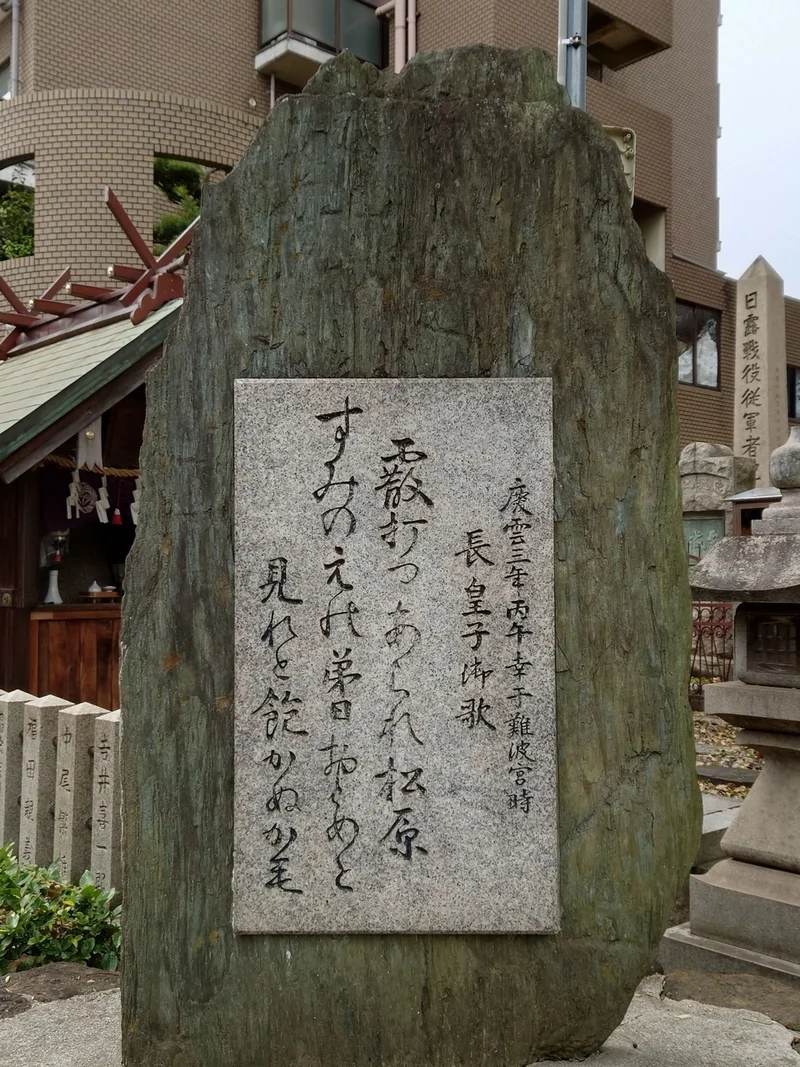 慶雲三年丙午幸于難波宮時
長皇子御歌
霰打つあられ松原
すみのえの弟日おとめと
見れと飽かぬか毛
日露戰役従軍者
吉井喜一郎
中尾
福田